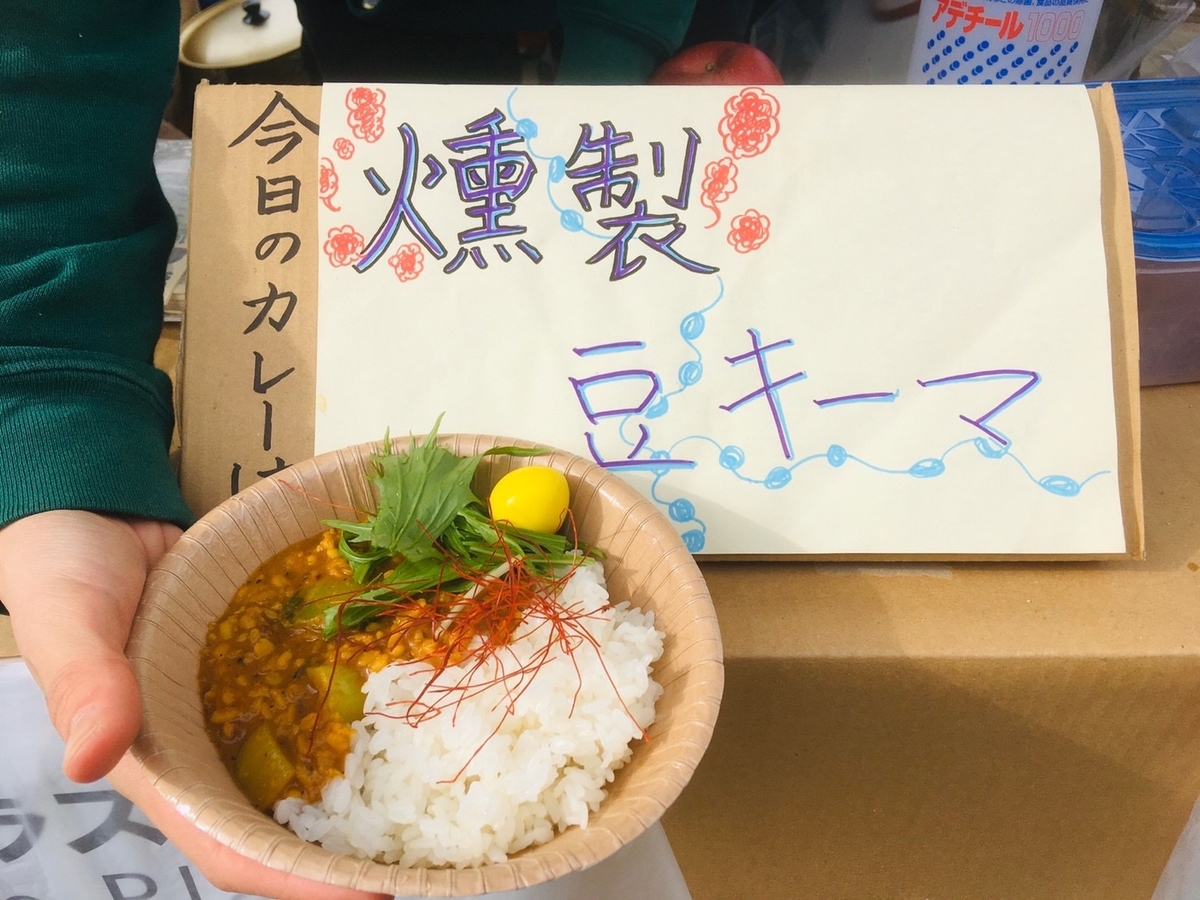 今日のカレーは
燻製
豆キーマ
アデチール1000
ラス